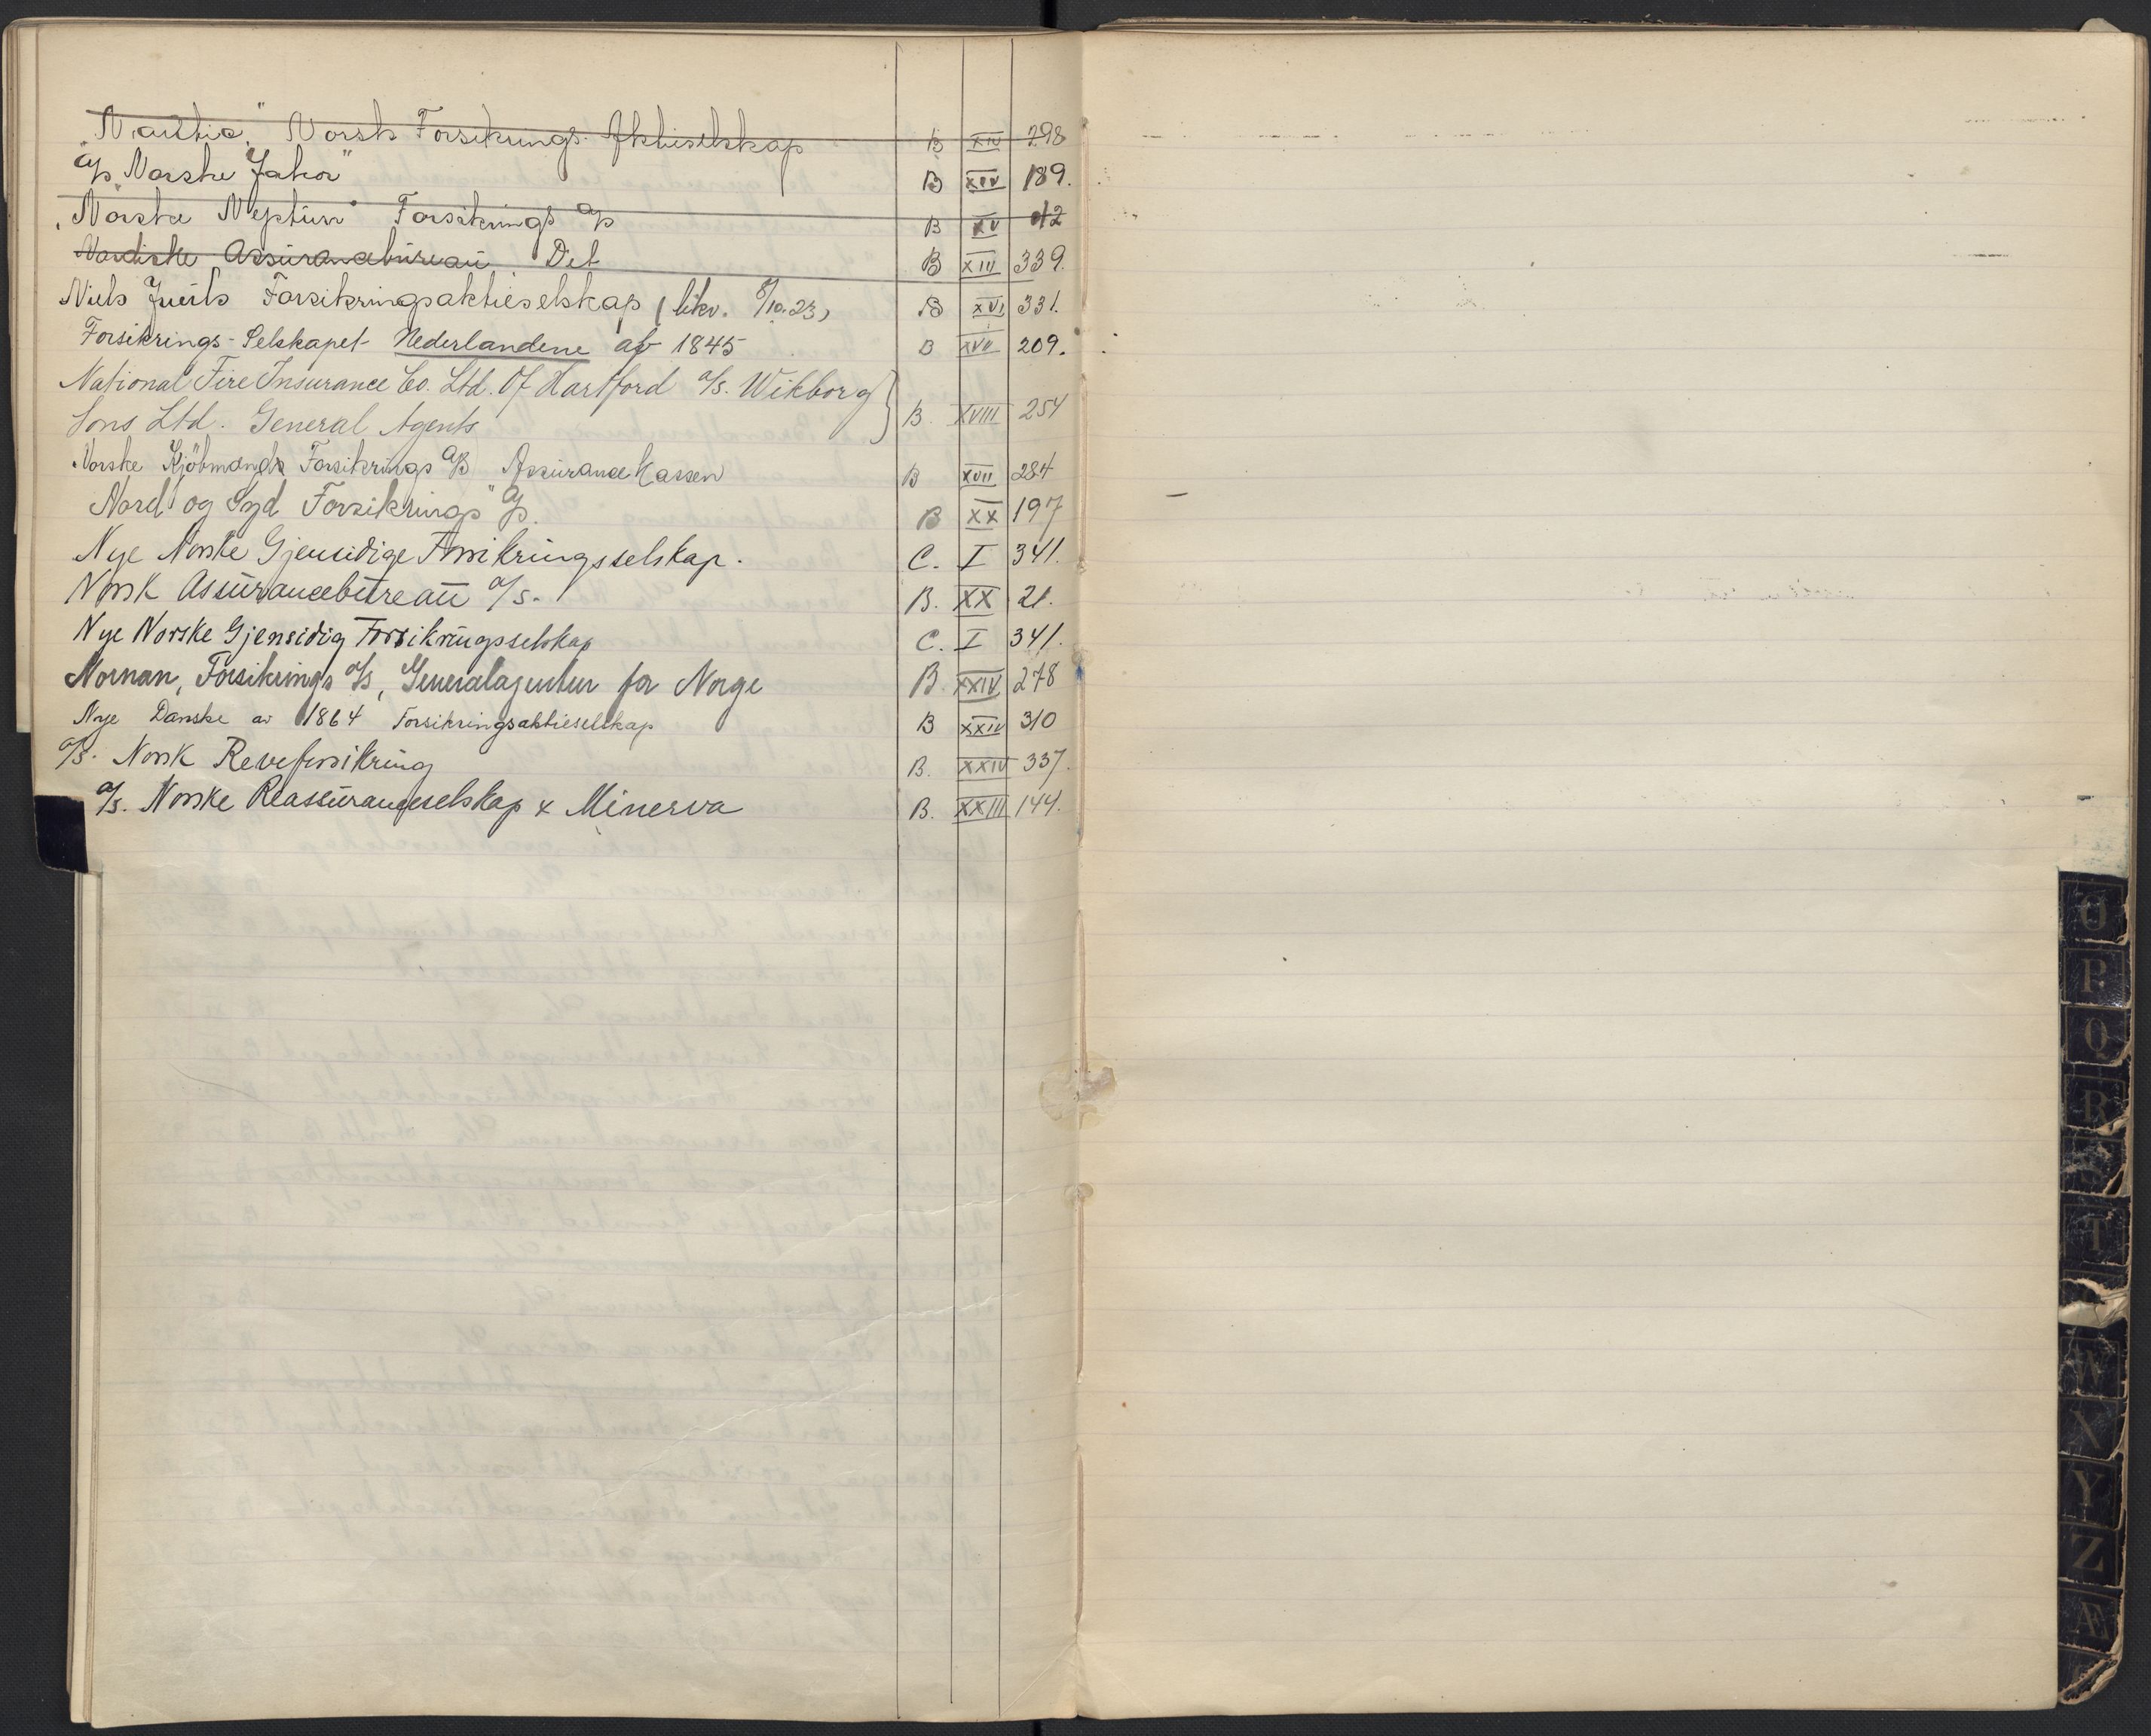 „Nautic," Norsk Forsikrings-Aktieselskap B XIV 298
A/S „Norske Jakor" B XIV 189.
„Norske Neptun" Forsikrings A/S B XV 42
Nordiske Assurancebureau Det B XIII 339.
Niels Juels Forsikringsaktieselskap (likv. 8/10.23) B XVI 331.
Forsikrings-Selskapet Nederlandene af 1845 B XVII 209.
National Fire Insurance Co. Ltd. Of Hartford a/s. Wikborg
Sons Ltd. General Agents B. XVIII 254
Norske Kjöbmænds Forsikrings A/S Assurancekassen B XVII 284
„Nord og Syd Forsikrings" A/S. B XX 197
Nye Norske Gjensidige Forsikringsselskap. C. I 341.
Norsk Assurancebureau a/s. B. XX 21.
Nye Norske Gjensidig Forsikringsselskap C. I 341.
Nornan, Forsikrings a/s, Generalagentur for Norge B. XXIV 278
Nye Danske av 1864 Forsikringsaktieselskap B XXIV 310
a/s. Norsk Reveforsikring B. XXIV 337.
a/s. Norske Reassuranceselskap x Minerva B. XXIII 144.
O
P
Q
R
S
T
W
X
Y
Z
Æ